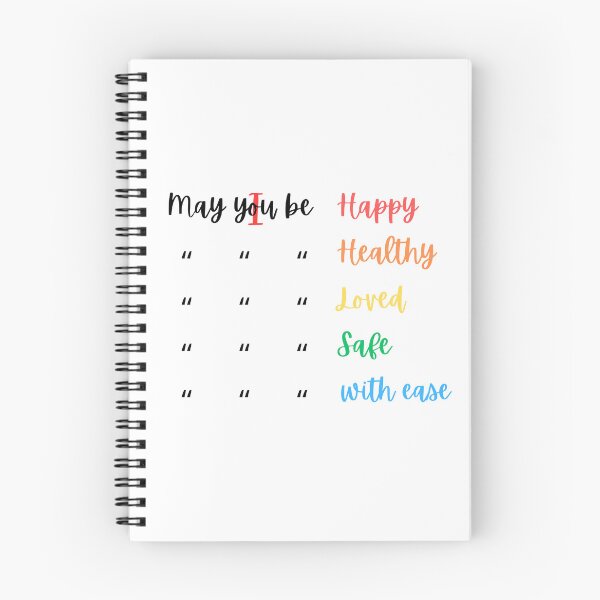 May you I be Happy
“ “ “ Healthy
“ “ “ Loved
“ “ “ Safe
“ “ “ with ease